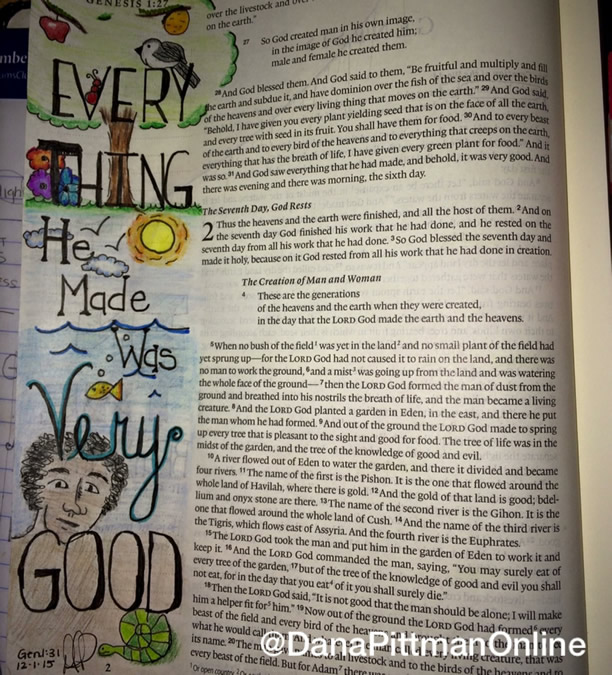 GENESIS 1:27
EVERY
THING
He
Made
Was
Very
GOOD
Gen 1:31
12-1-15
2
over the livestock and over
on the earth."
27 So God created man in his own image,
in the image of God he created him;
male and female he created them.
28 And God blessed them. And God said to them, "Be fruitful and multiply and fill
the earth and subdue it, and have dominion over the fish of the sea and over the birds
of the heavens and over every living thing that moves on the earth." 29 And God said,
"Behold, I have given you every plant yielding seed that is on the face of all the earth,
and every tree with seed in its fruit. You shall have them for food. 30 And to every beast
of the earth and to every bird of the heavens and to everything that creeps on the earth,
everything that has the breath of life, I have given every green plant for food." And it
was so. 31 And God saw everything that he had made, and behold, it was very good. And
there was evening and there was morning, the sixth day.
The Seventh Day, God Rests
2 Thus the heavens and the earth were finished, and all the host of them. 2 And on
the seventh day God finished his work that he had done, and he rested on the
seventh day from all his work that he had done. 3 So God blessed the seventh day and
made it holy, because on it God rested from all his work that he had done in creation.
The Creation of Man and Woman
4 These are the generations
of the heavens and the earth when they were created,
in the day that the LORD God made the earth and the heavens.
5 When no bush of the field1 was yet in the land2 and no small plant of the field had
yet sprung up—for the LORD God had not caused it to rain on the land, and there was
no man to work the ground, 6 and a mist3 was going up from the land and was watering
the whole face of the ground— 7 then the LORD God formed the man of dust from the
ground and breathed into his nostrils the breath of life, and the man became a living
creature. 8 And the LORD God planted a garden in Eden, in the east, and there he put
the man whom he had formed. 9 And out of the ground the LORD God made to spring
up every tree that is pleasant to the sight and good for food. The tree of life was in the
midst of the garden, and the tree of the knowledge of good and evil.
10 A river flowed out of Eden to water the garden, and there it divided and became
four rivers. 11 The name of the first is the Pishon. It is the one that flowed around the
whole land of Havilah, where there is gold. 12 And the gold of that land is good; bdel-
lium and onyx stone are there. 13 The name of the second river is the Gihon. It is the
one that flowed around the whole land of Cush. 14 And the name of the third river is
the Tigris, which flows east of Assyria. And the fourth river is the Euphrates.
15 The LORD God took the man and put him in the garden of Eden to work it and
keep it. 16 And the LORD God commanded the man, saying, "You may surely eat of
every tree of the garden, 17 but of the tree of the knowledge of good and evil you shall
not eat, for in the day that you eat4 of it you shall surely die."
18 Then the LORD God said, "It is not good that the man should be alone; I will make
him a helper fit for5 him." 19 Now out of the ground the LORD God had formed6 every
beast of the field and every bird of the heavens and brought them to the man to see
what he would call living creature, that was
its name. 20 The man to all livestock and to the birds of the heavens and to
every beast of the field. But for Adam7 there was
1 Or open country
@DanaPittmanOnline